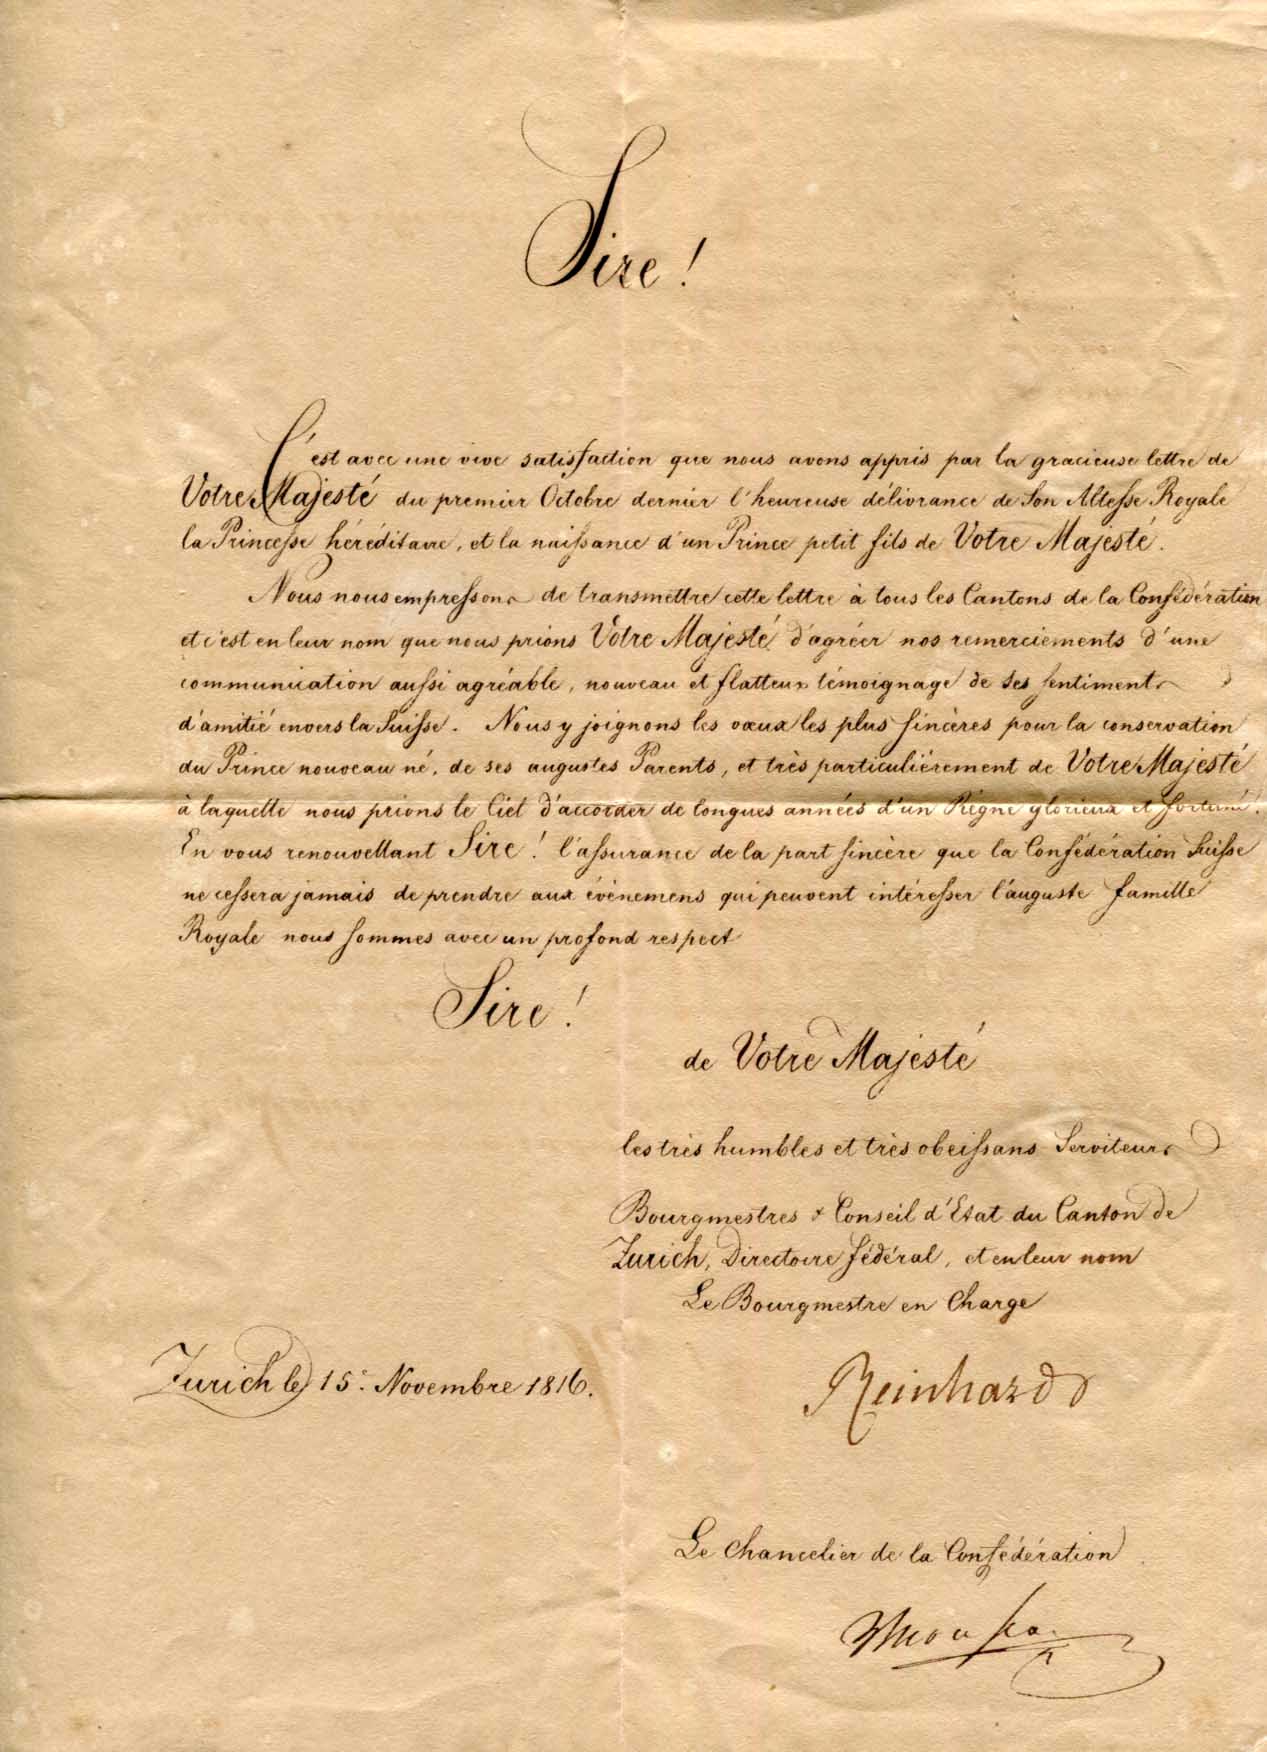 Sire!
C'est avec une vive satisfaction que nous avons appris par la gracieuse lettre de
Votre Majesté du premier Octobre dernier l'heureuse délivrance de Son Altesse Royale
la Princesse héréditaire, et la naissance d'un Prince petit fils de Votre Majesté.
Nous nous empressons de transmettre cette lettre à tous les Cantons de la Confédération
et c'est en leur nom que nous prions Votre Majesté d'agréer nos remerciements d'une
communication aussi agréable, nouveau et flatteux témoignage de ses sentiments
d'amitié envers la Suisse. Nous y joignons les vœux les plus sincères pour la conservation
du Prince nouveau né, de ses augustes Parents, et très particulièrement de Votre Majesté
à laquelle nous prions le Ciel d'accorder de longues années d'un Règne glorieux et fortuné.
En vous renouvellant Sire! l'assurance de la part sincère que la Confédération Suisse
ne cessera jamais de prendre aux évènemens qui peuvent intéresser l'auguste famille
Royale nous sommes avec un profond respect
Sire!
de Votre Majesté
les très humbles et très obeissans Serviteurs
Bourgmestres & Conseil d'Etat du Canton de
Zurich, Directoire fédéral, et en leur nom
Le Bourgmestre en Charge
Zurich le 15. Novembre 1816.
Reinhard
Le Chancelier de la Confédération
Mousson